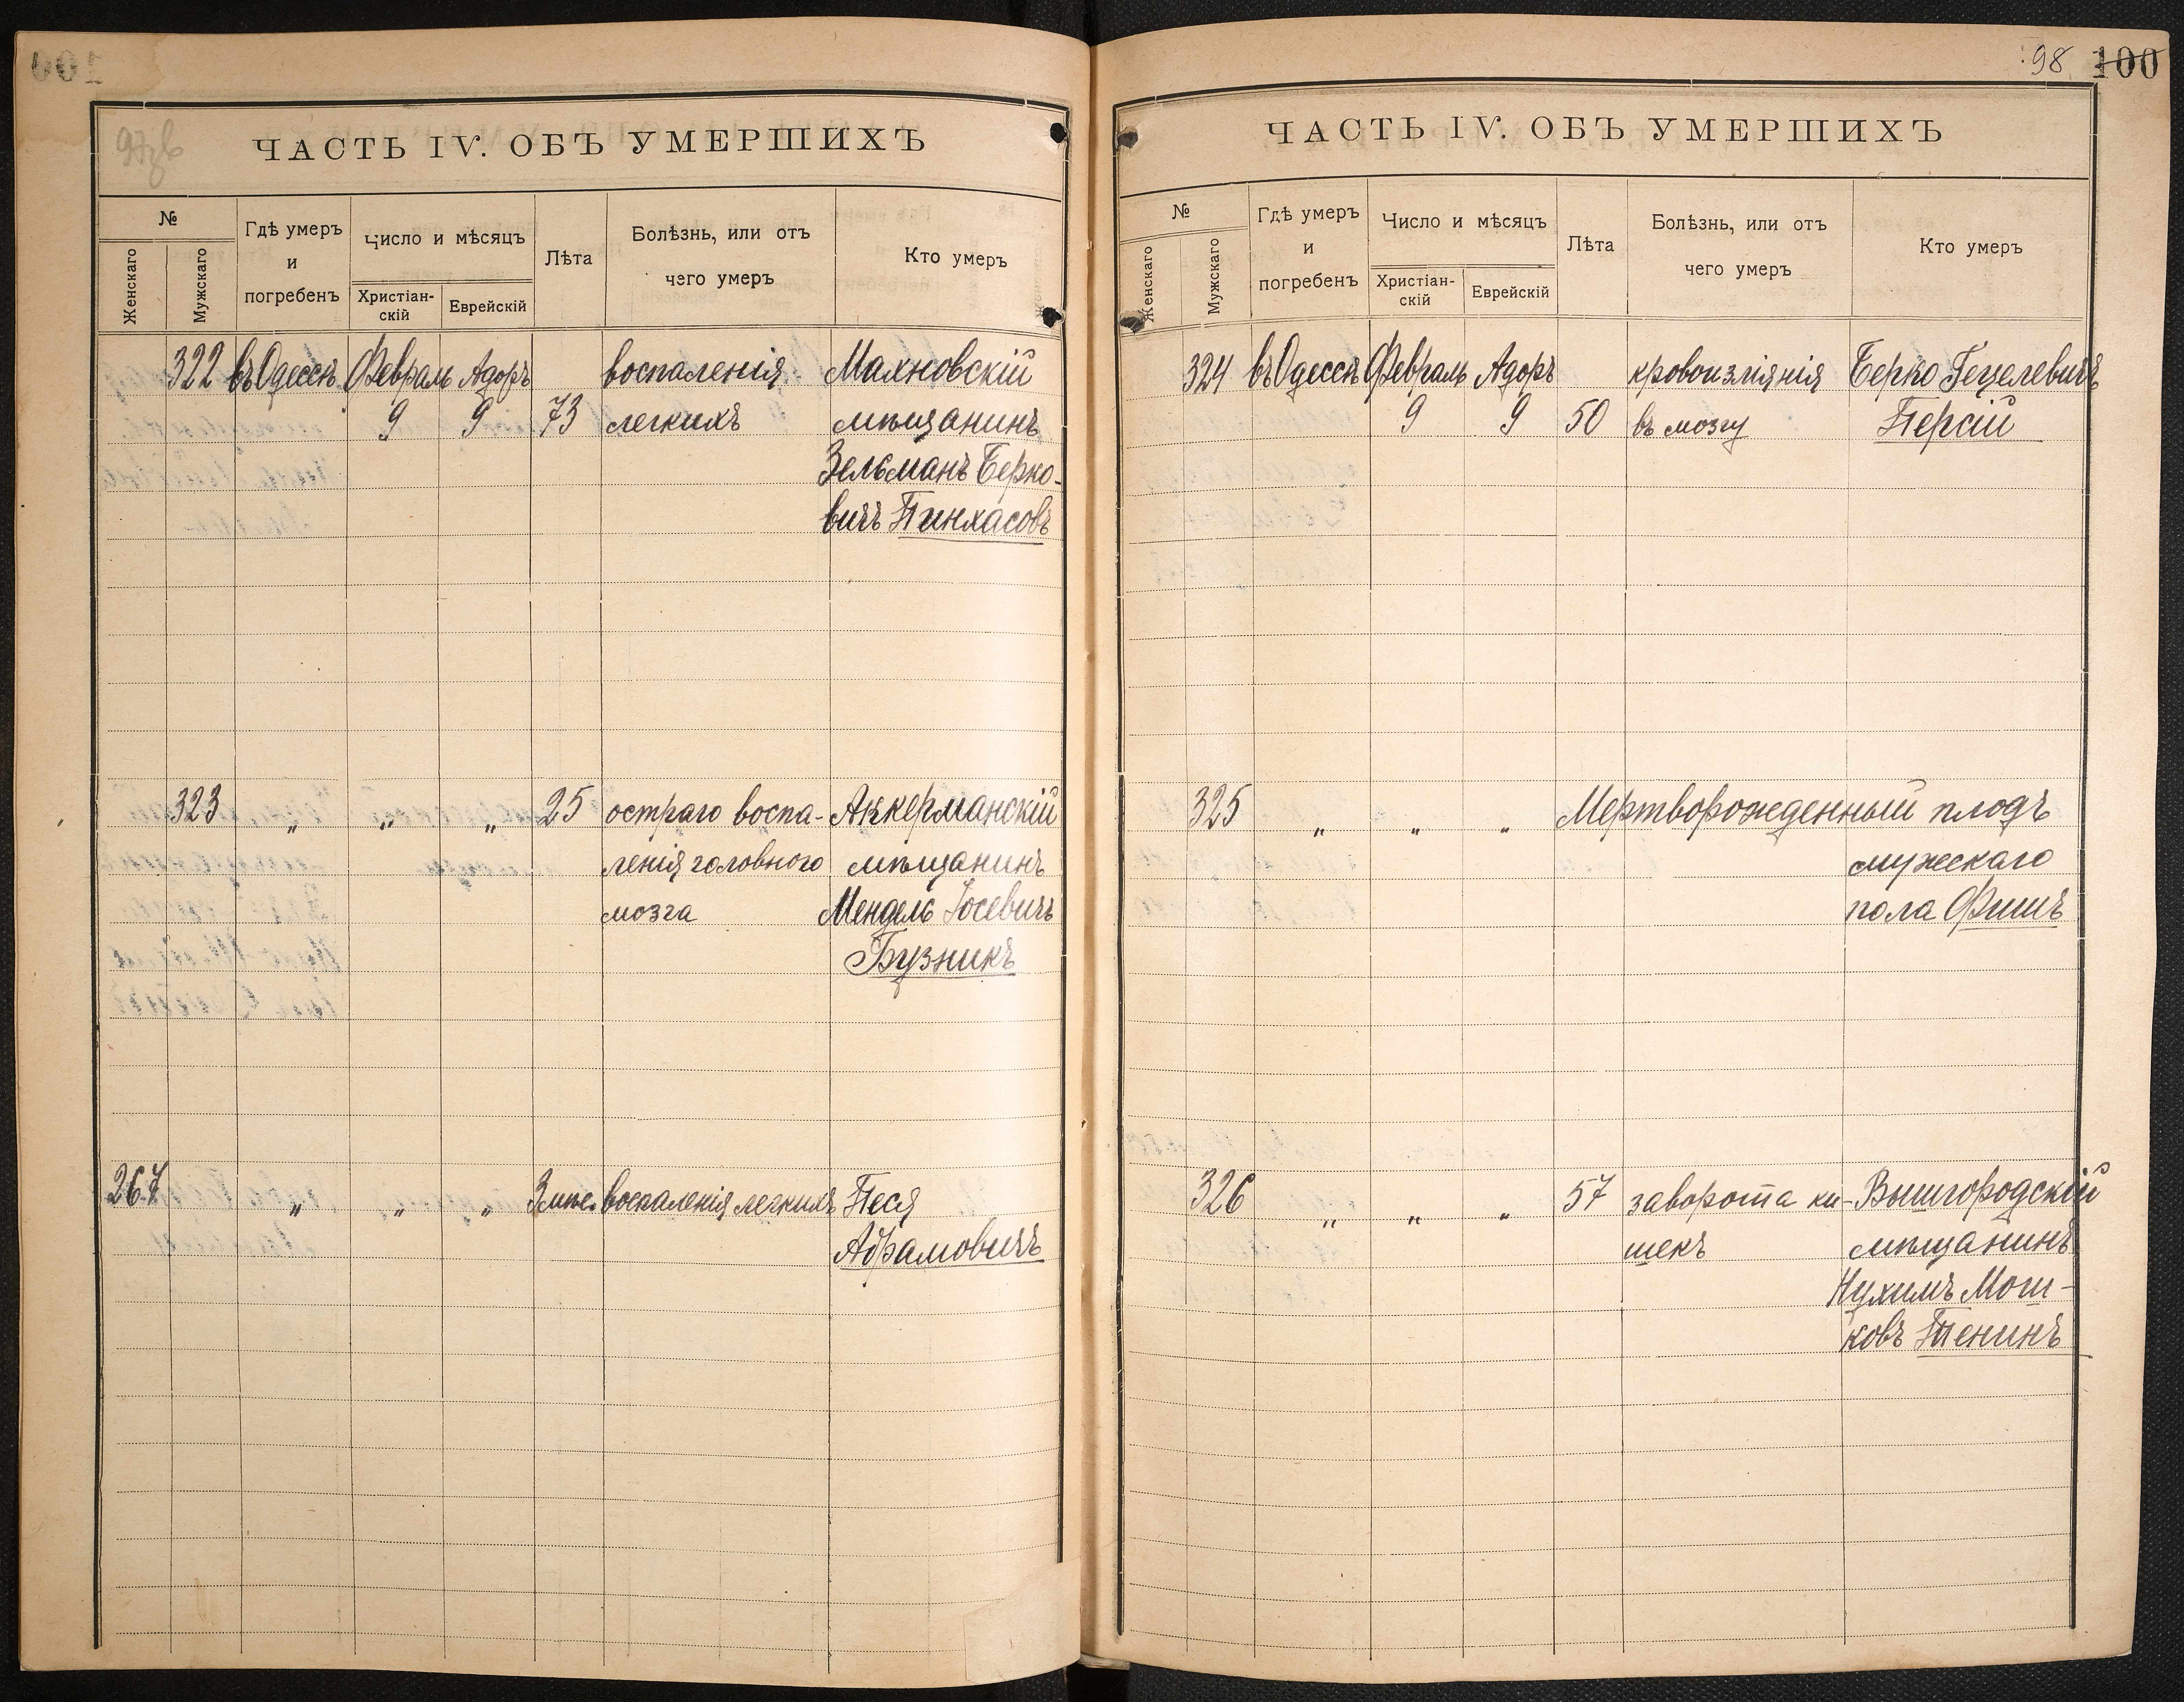 ЧАСТЬ IV. ОБЪ УМЕРШИХЪ
№
Женскаго
Мужскаго
Гдѣ умеръ
и
погребенъ
Число и мѣсяцъ
Христіан-
скій
Еврейскій
Лѣта
Болѣзнь, или отъ
чего умеръ
Кто умеръ
322 въ Одессѣ Февраль Адоръ воспаленія Махновскій
9 9 73 легкихъ мѣщанинъ
Зельманъ Берко-
вичъ Пинхасовъ
323 „ „ „ 25 остраго воспа- Аккерманскій
ленія головного мѣщанинъ
мозга Мендель Іосевичъ
Бузникъ
267 „ „ „ 3 мѣс. воспаленія легкихъ Песя
Абрамовичъ
98 100
ЧАСТЬ IV. ОБЪ УМЕРШИХЪ
№
Женскаго
Мужскаго
Гдѣ умеръ
и
погребенъ
Число и мѣсяцъ
Христіан-
скій
Еврейскій
Лѣта
Болѣзнь, или отъ
чего умеръ
Кто умеръ
324 въ Одессѣ Февраль Адоръ кровоизліянія Берко Гецелевичъ
9 9 50 въ мозгу Персій
325 „ „ „ Мертворожденный плодъ
мужескаго
пола Фишъ
326 „ „ „ 57 заворота ки- Вышгородскій
шекъ мѣщанинъ
Нухимъ Мош-
ковъ Тенинъ